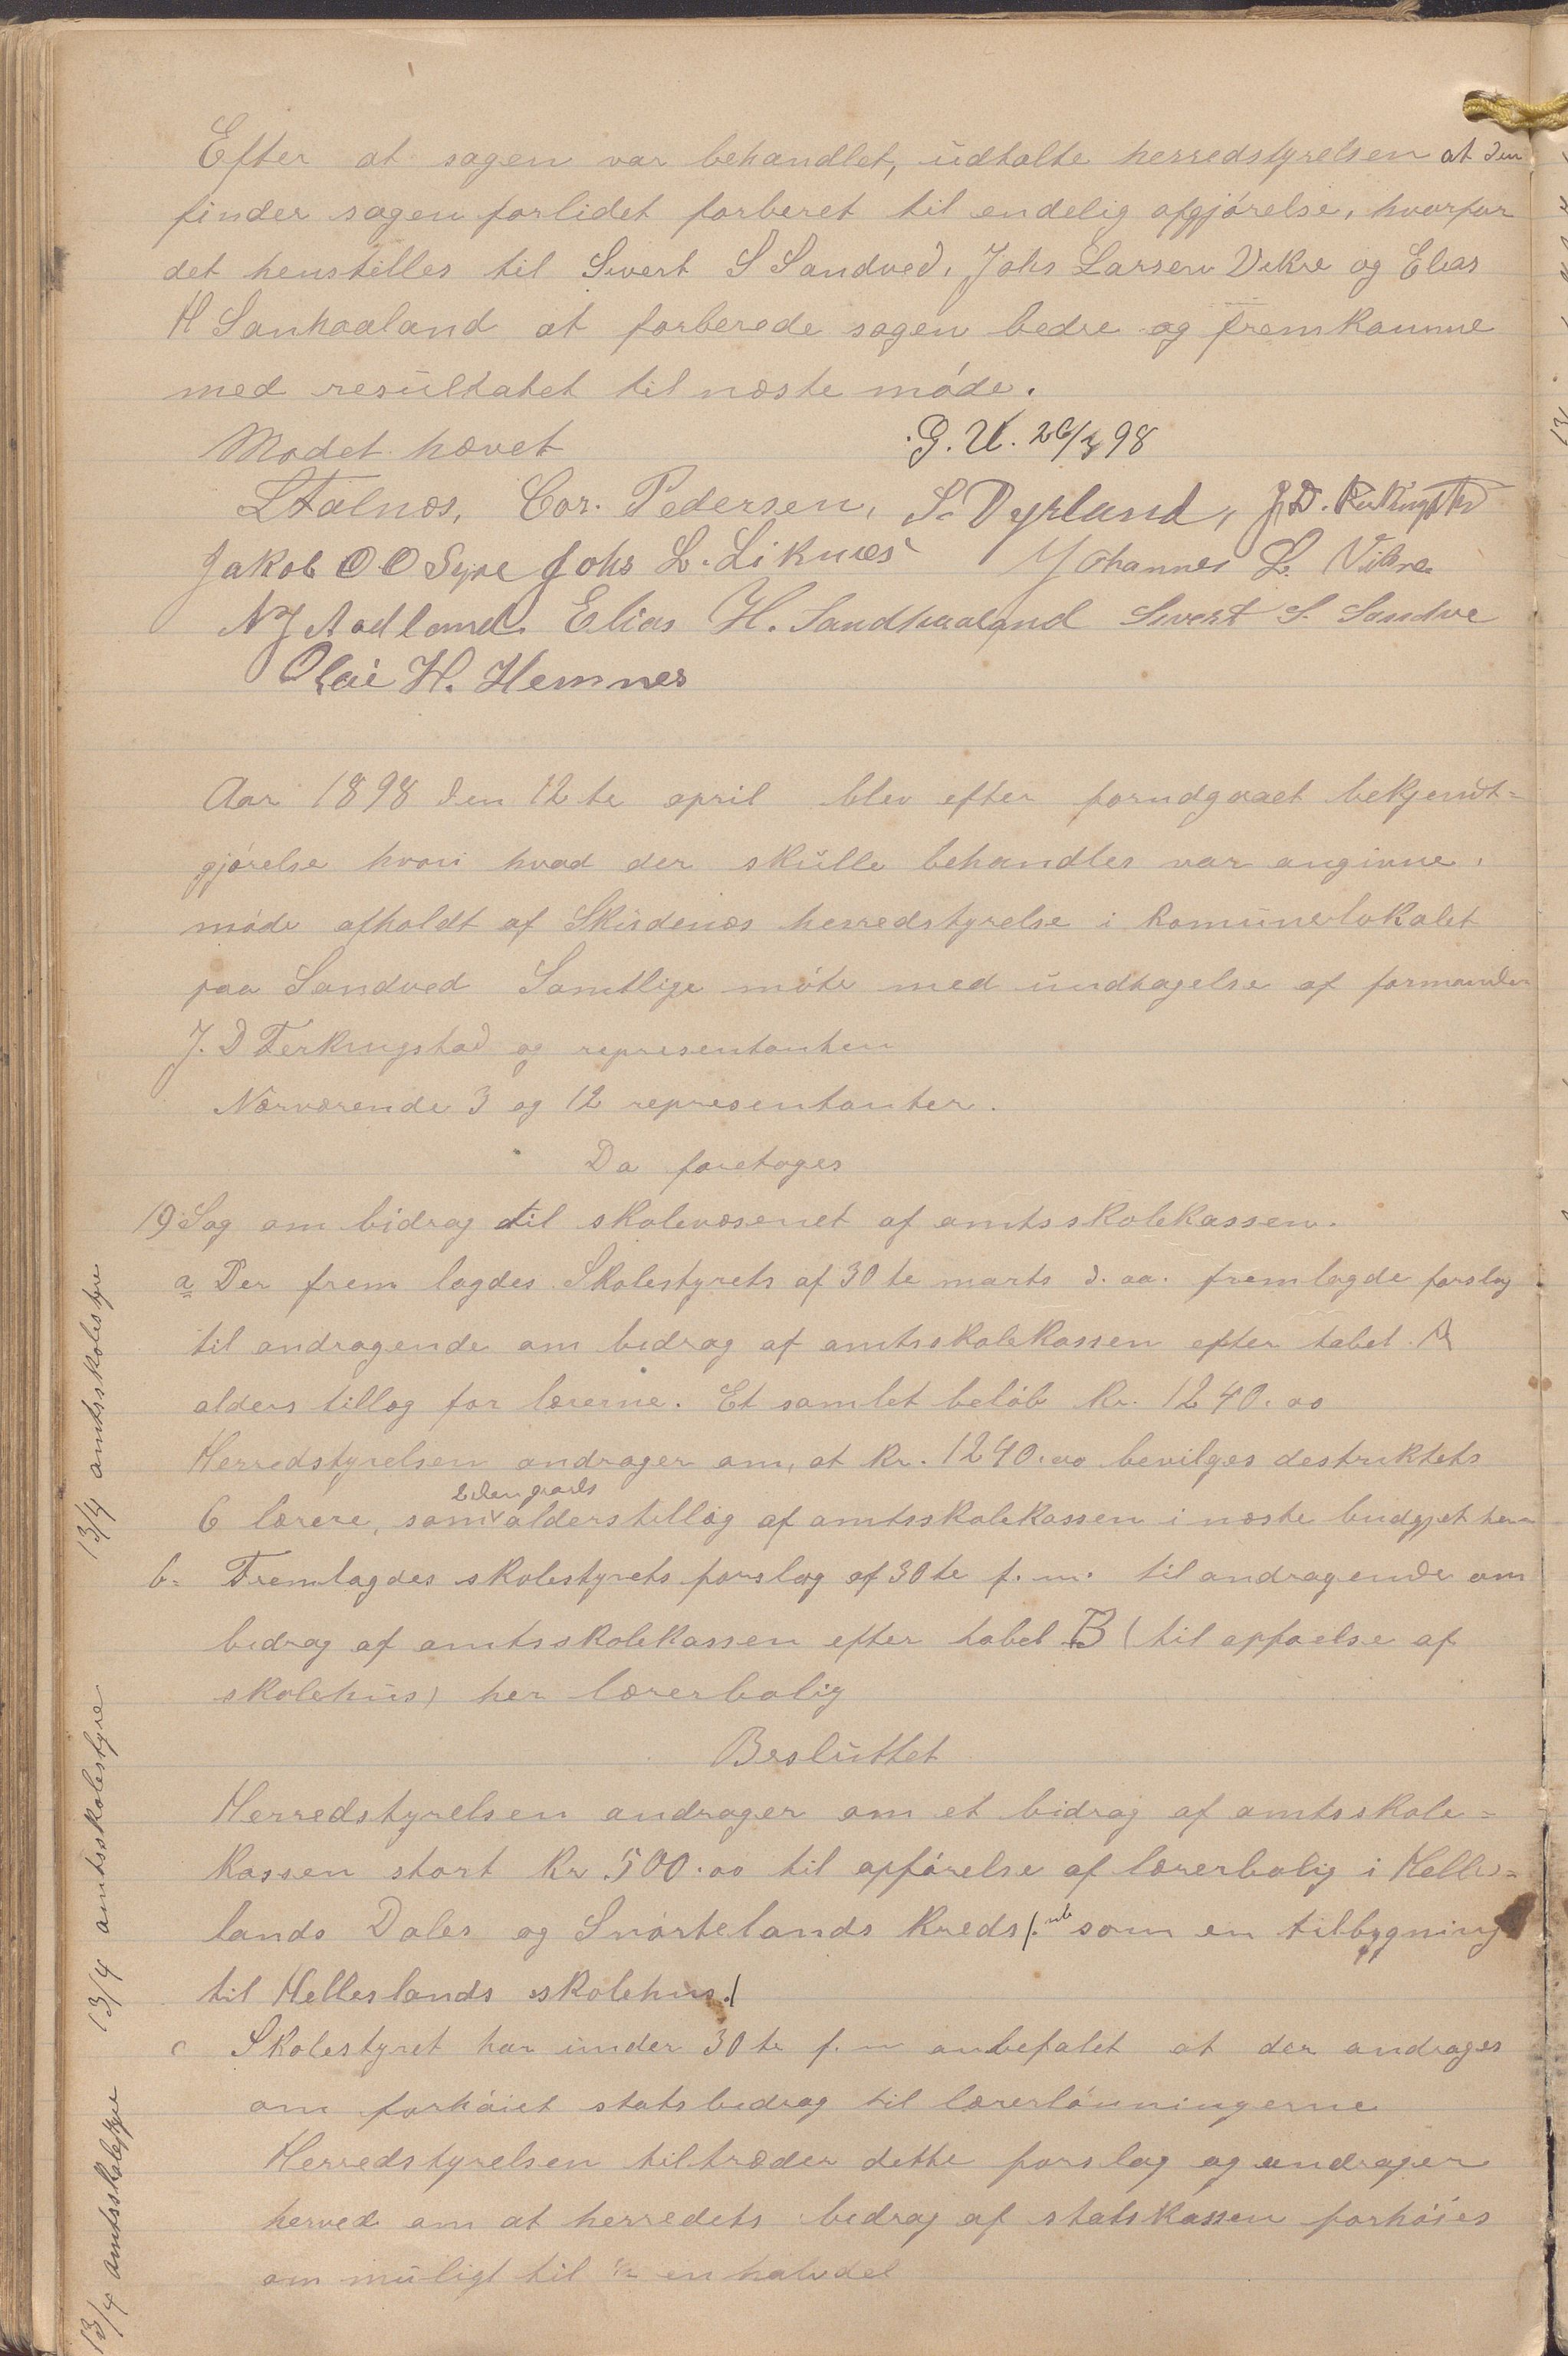 Efter at sagen var behandlet, üdtalte herredstyrelsen at den
finder sagen forlidet forberet til endelig afgjörelse, hvorfor
det henstilles til Sivert S Sandved, Johs Larsen Vikre og Elias
H Sanhaaland at forberede sagen bedre og fremkomme
med resültatet til næste möde.
Mødet hævet
G. U. 26/3 98
L Falnæs, Cor. Pedersen, S. Dyrland, J. D.
Jakob O O Syre Johs L. Liknæs Johannes L. Vikre
N J Aadland. Elias H. Sandhaaland Sivert S. Sandve
Olai H. Hemnes
Aar 1898 den 12te april blev efter forudgaaet bekjendt=
gjörelse hvori hvad der skülle behandles var angivne,
möde afholdt af Sküdenæs herredstyrelse i Komünelokalet
paa Sandved Samtlige möte med ündtagelse af formanden
J. D Ferkingstad og representanten
Nærværende 3 og 12 representanter.
Da foretoges
19 Sag om bidrag til skolevæsenet af amtsskolekassen.
a Der frem lagdes Skolestyrets af 30te marts d. aa. fremlagde forslag
til andragende om bidrag af amtsskolekassen efter tabel A
alders tillæg for lærerne. Et samlet beløb Kr. 1240.00
Herredstyrelsen andrager om, at Kr. 1240.00 bevilges destriktets
6 lærere, som alderstillæg af amtsskolekassen i næste budgjet
b= Fremlagdes skolestyrets forslag af 30te f. m. til andragende om
bidrag af amtsskolekassen efter tabel B (til opførelse af
skolehüs) her lærerbolig
Beslüttet
Herredstyrelsen andrager om et bidrag af amtsskole=
kassen stort Kr. 500.00 til opförelse af lærerbolig i Helles=
lands Dales og Snörtelands Kreds /: som en tilbygning
til Helleslands skolehus./
c Skolestyret har ünder 30te f. m anbefalet at der andrages
om forhöiet statsbidrag til lærerlönningerne
Herredstyrelsen tiltræder dette forslag og andrager
herved om at herredets bidrag af statskassen forhöies
om müligt til ½ en halvdel
13/4 amtsskolestyre
13/4 amtsskolestyre
13/4 amtsskolestyre